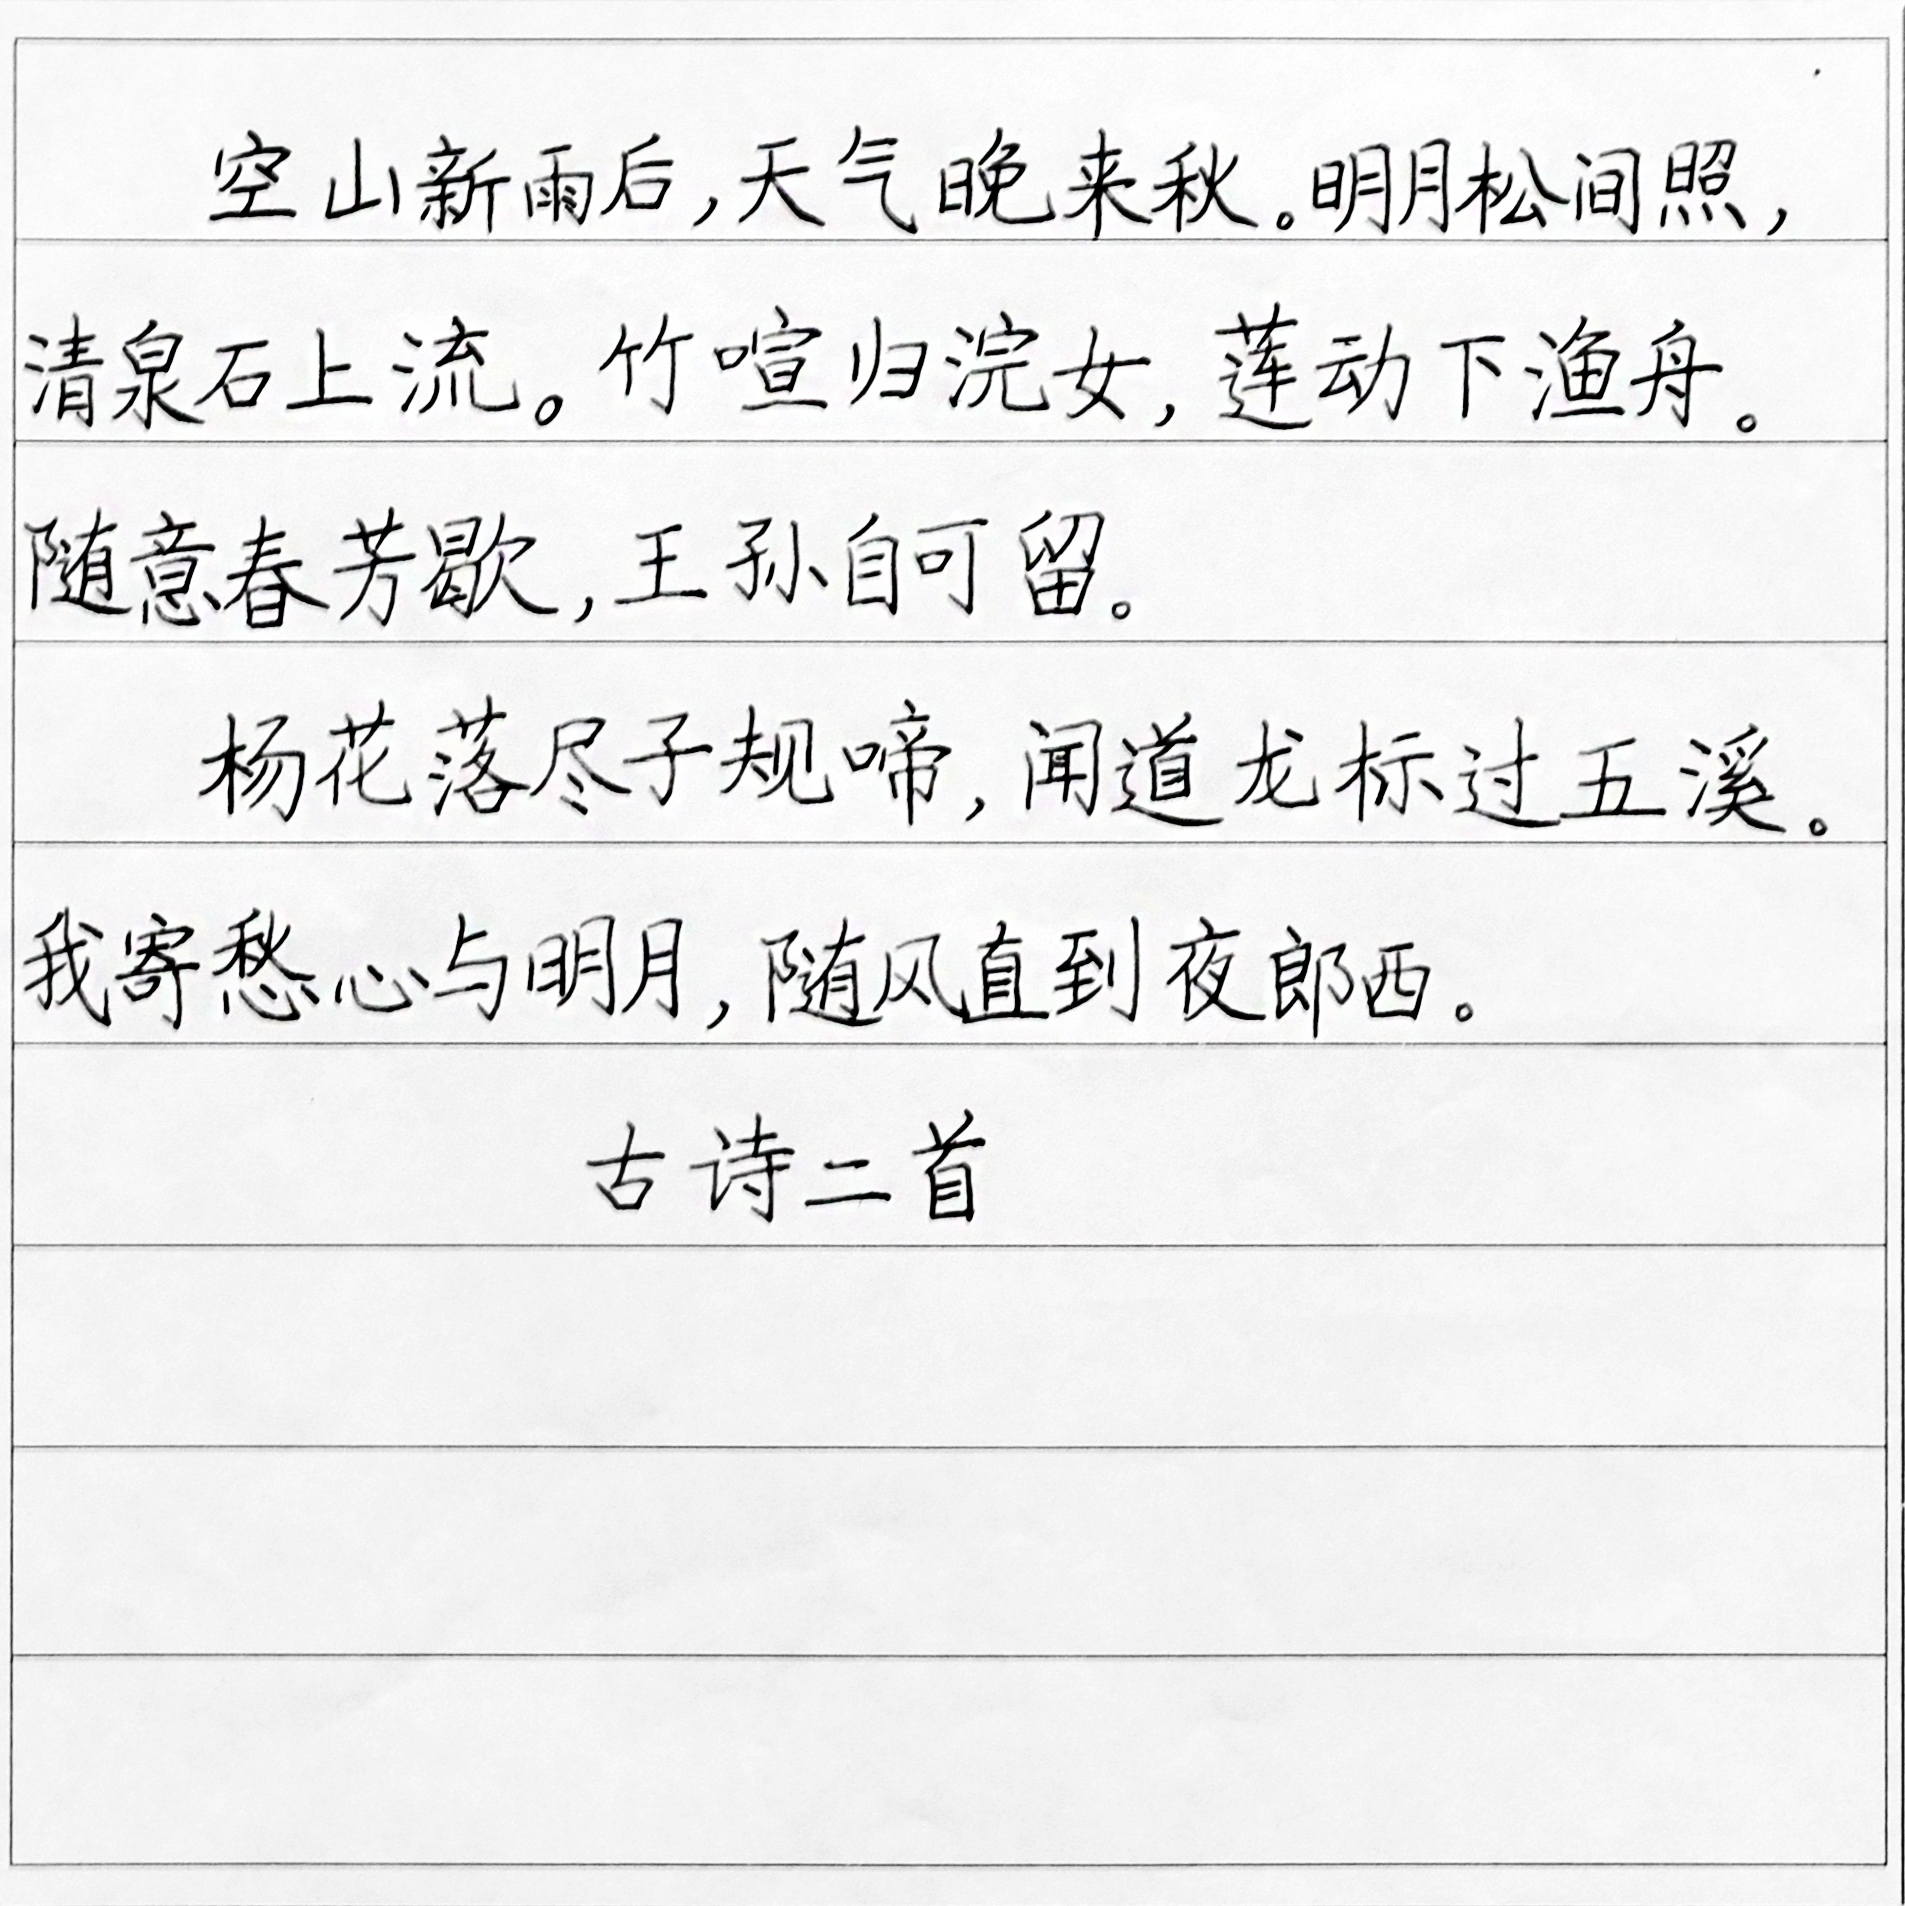 空山新雨后,天气晚来秋。明月松间照,
清泉石上流。竹喧归浣女,莲动下渔舟。
随意春芳歇,王孙自可留。
杨花落尽子规啼,闻道龙标过五溪。
我寄愁心与明月,随风直到夜郎西。
古诗二首